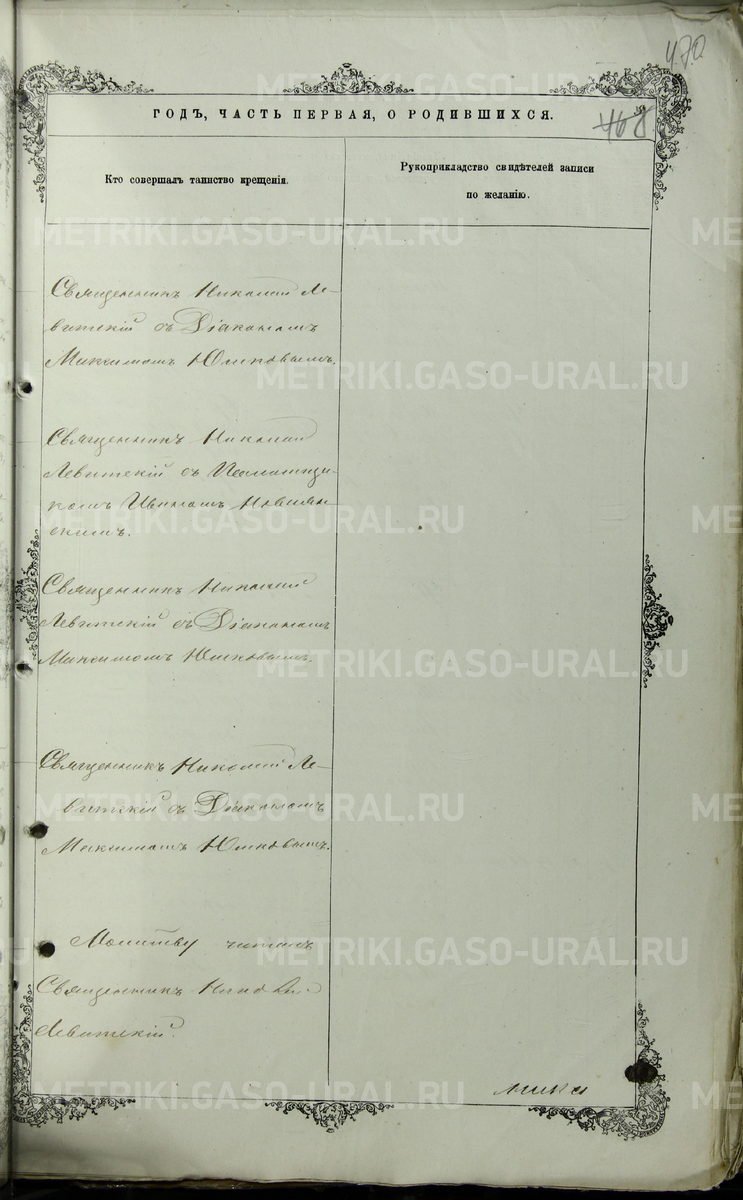 470
468
ГОДЪ, ЧАСТЬ ПЕРВАЯ, О РОДИВШИХСЯ.
Кто совершалъ таинство крещенія.
Рукоприкладство свидѣтелей записи
по желанію.
Священникъ Николай Ле-
витскій съ Діакономъ
Максимомъ Юшковымъ.
Священникъ Николай
Левитскій съ Псаломщи-
комъ Иваномъ
скимъ.
Священникъ Николай
Левитскій съ Діакономъ
Максимомъ Юшковымъ.
Священникъ Николай Ле-
витскій съ Діакономъ
Максимомъ Юшковымъ.
Молитву читалъ
Священникъ Николай
Левитскій.
METRIKI.GASO-URAL.RU